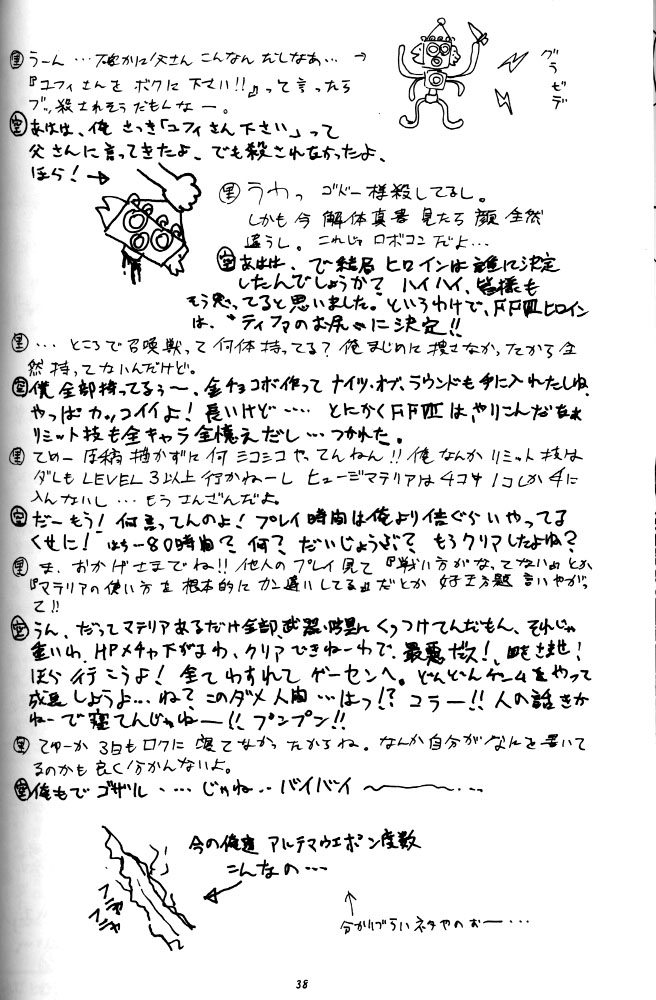 (里) うーん…確かに父さんこんなんだしなあ… →
『ユフィさんをボクに下さい!!』って言ったら
ブッ殺されそうだもんなー。
グラ
ゼデ
(空) あはは、俺さっき「ユフィさん下さい」って
父さんに言ってきたよ、でも殺されなかったよ、
ほら! →
(里) うわっ ゴドー様殺してるし。
しかも今 解体真書 見たら 顔 全然
違うし。これじゃロボコンだよ…
(空) あはは、で結局 ヒロインは誰に決定
したんでしょうか? ハイハイ、皆様も
もう思ってると思いました。というわけで、FFⅦヒロイン
は、〝ティファのお尻〟に決定!!
(里) … ところで召喚獣って何体持ってる? 俺まじめに捜さなかったから全
然持ってないんだけど。
(空) 僕全部持ってるぅ〜、金チョコボ作ってナイツ・オブ・ラウンドも手に入れたしね、
やっぱカッコイイよ! 長いけど…… とにかくFFⅦは、やりこんだなぁ
リミット技も全キャラ全憶えだし…つかれた。
(里) てめー 原稿描かずに何コニコニやってんねん!! 俺なんかリミット技は
ダレもLEVEL3以上行かねーし ヒュージマテリアは4コ中1コしか手に
入んないし…もうさんざんだよ。
(空) だーもう! 何言ってんのよ! プレイ時間は俺より倍ぐらいやってる
くせに! はっ…80時間? 何? だいじょうぶ? もうクリアしたよね?
(里) ま、おかげさまでね!! 他人のプレイ見て『戦い方がなってない』とか
『マテリアの使い方を根本的にカン違いしてる』だとか 好き方題言いやがっ
て!!
(空) うん、だってマテリアあるだけ全部、武器・防具にくっつけてんだもん、それじゃ
重いわ、HPメチャ下がるわ、クリアできねーわで、最悪だス!
ほら行こうよ! 全てわすれてゲーセンへ。どんどんゲームをやって
成長しようよ…ね? このダメ人間…はっ!? コラー!! 人の話きか
ねーで寝てんじゃねーー!! プンプン!!
(里) てゆーか3日もロクに寝てなかったからね。なんか自分がなにを書いて
るのかも良く分かんないよ。
(空) 俺もでゴザル‥…じゃね‥バイバイ〜……
今の俺達 アルテマウエポン度数
こんなの…
フニャ
フニャ
↑
分かりづらいネタやのぉー…
38